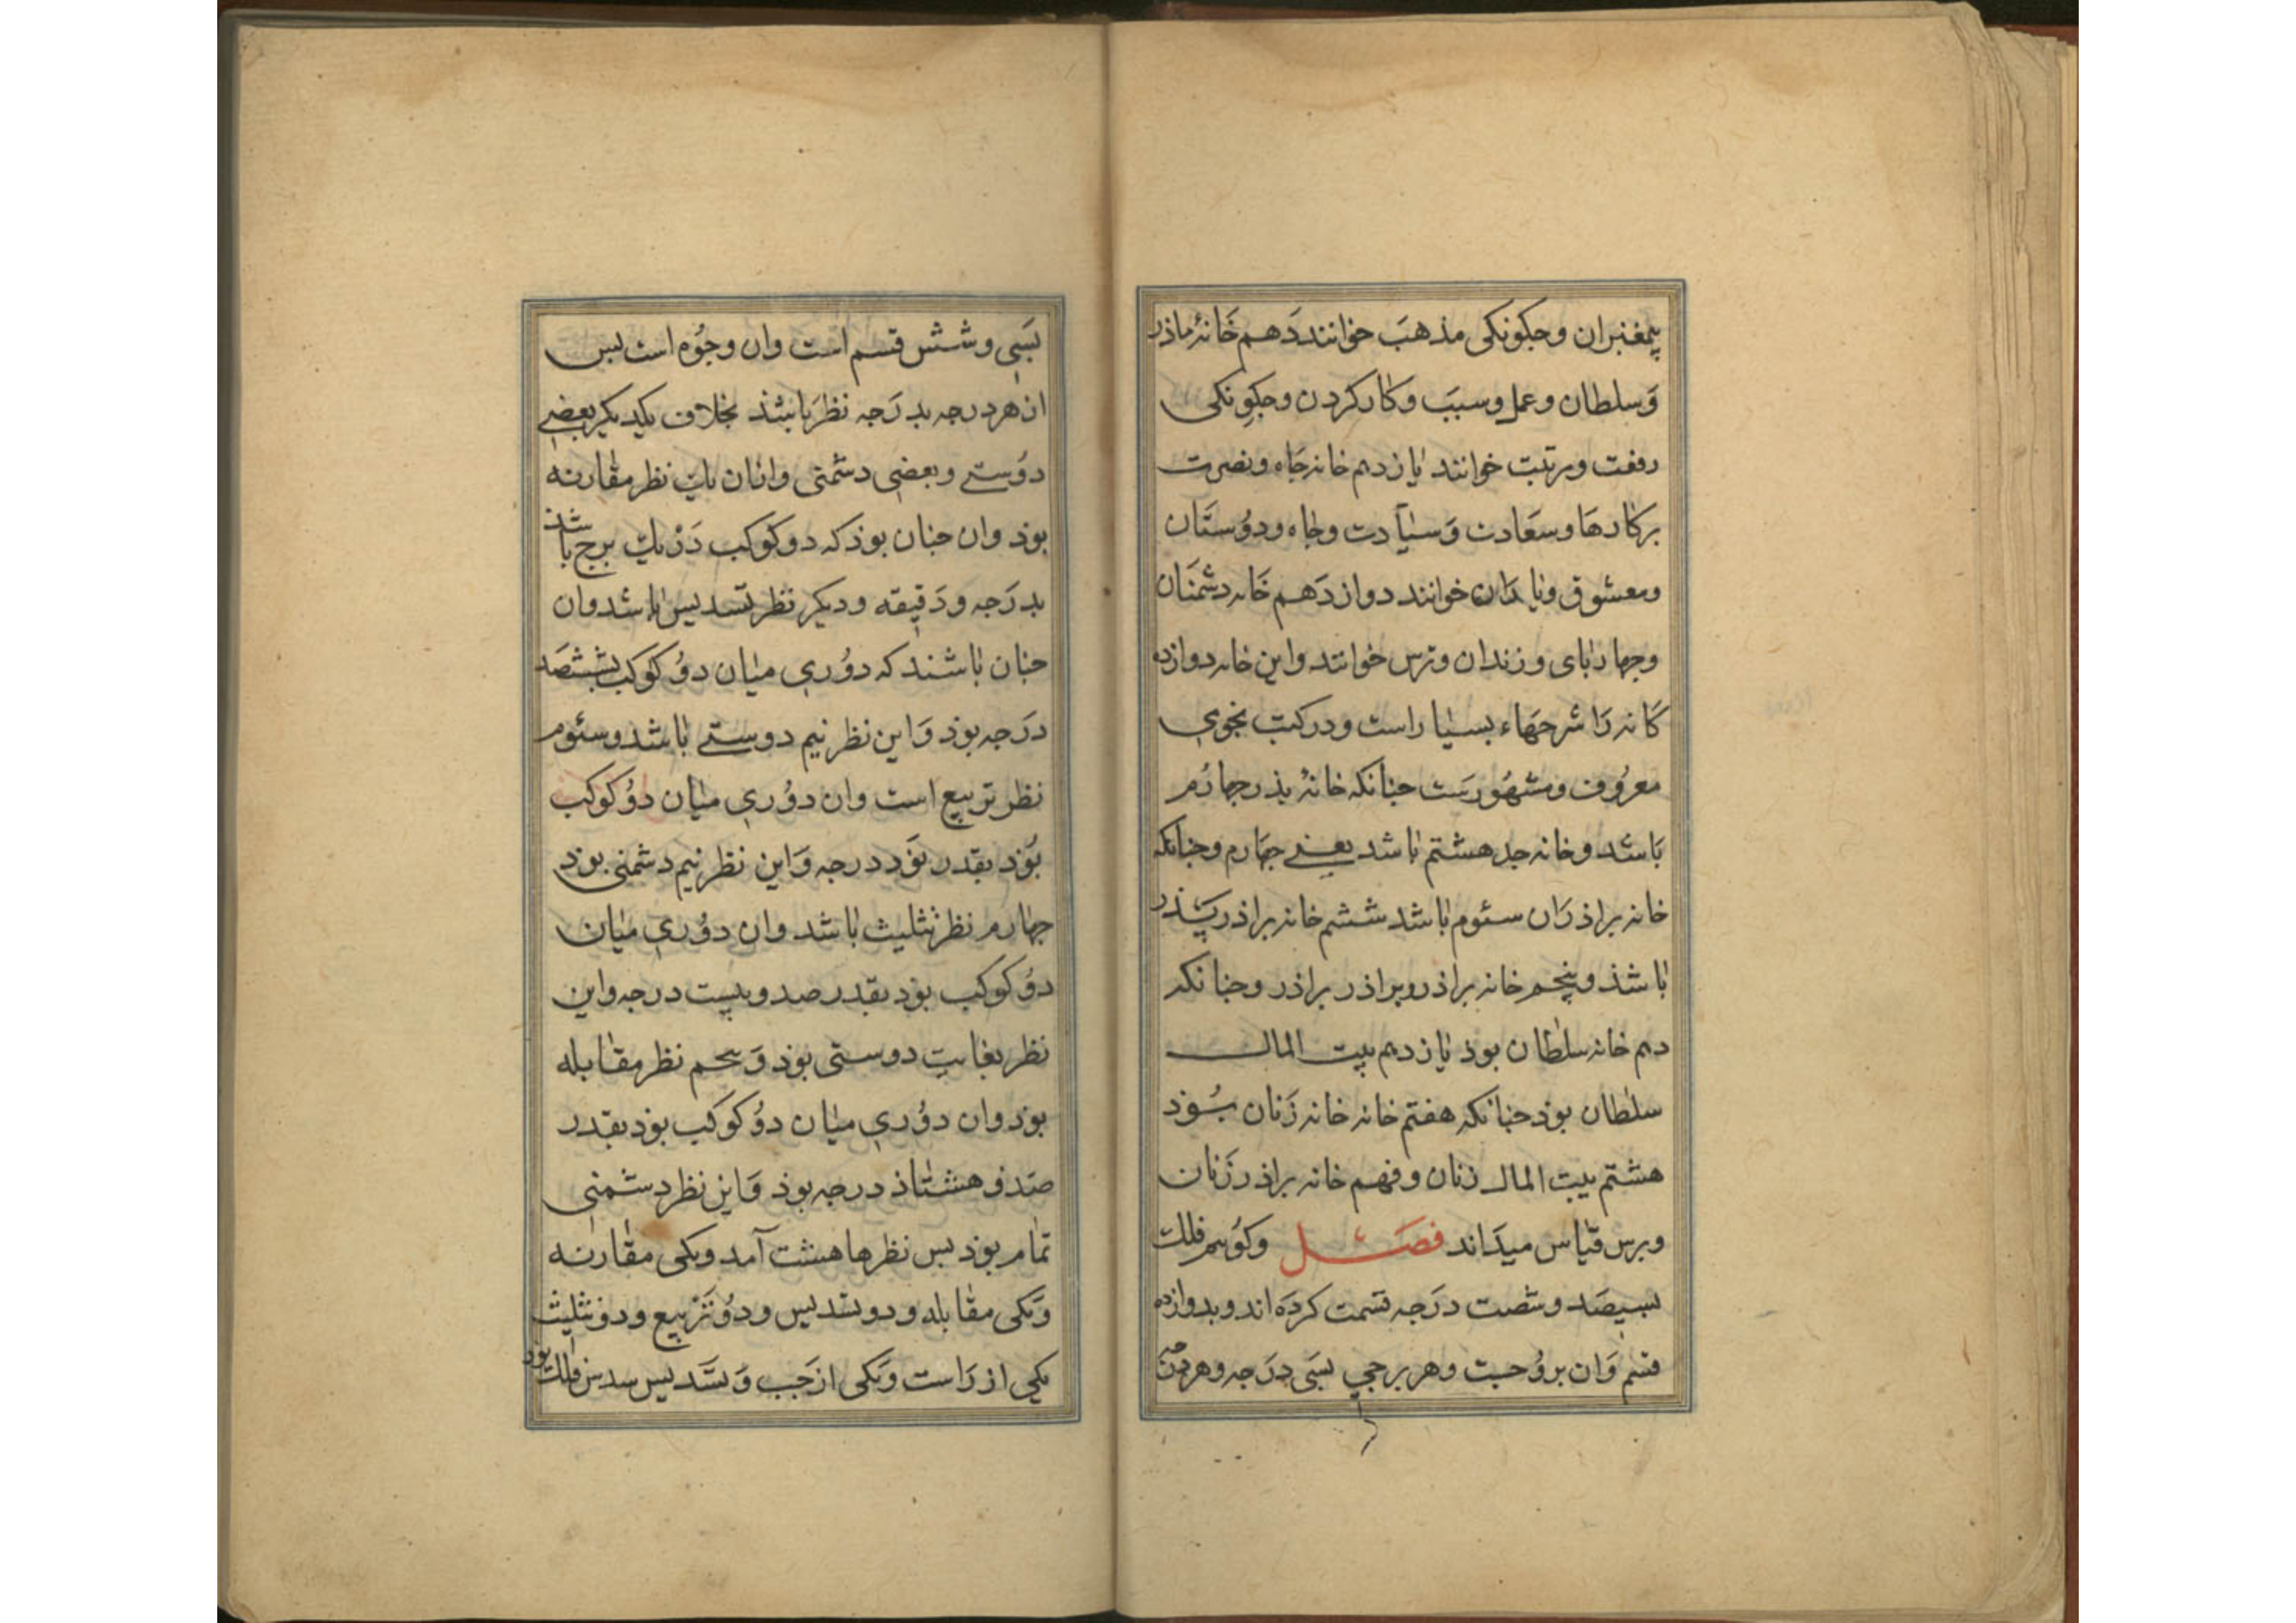 پیغمبران وجکونکی مذهب خوانند دهم خانۀ ماذر
وسلطان وعمل وسبب وکارکردن وجکونکی
رفعت ومرتبت خوانند یازدهم خانه جاه ونصرت
برکارها وسعادت وسیادت وجاه ودوستان
ومعشوق ویاران خوانند دوازدهم خانه دشمنان
وجهارپای وزندان وترس خوانند واین خانه دوازده
کانه را شرحهاء بسیار است ودر کتب نجومی
معروف ومشهورست جنانکه خانۀ پذر جهارم
باشد وخانه جد هشتم باشد یعنی جهارم وجنانکه
خانه براذران سئوم باشد ششم خانه براذر پذر
باشذ وپنجم خانه براذر وبراذر براذر وجنانکه
دهم خانه سلطان بوذ یازدهم بیت المال
سلطان بوذ جنانکه هفتم خانه خانه زنان بوذ
هشتم بیت المال زنان ونهم خانه براذر زنان
وبرین قیاس میداند فصل وکوییم فلک
بسیصد وشصت درجه قسمت کرده اند وبدوازده
قسم وان بروجست وهر برجی بسی درجه وهر
بسی وشش قسم است وان وجوه است بس
از هر درجه بدرجه نظر باشذ بخلاف یکدیکر بعضی
دوستی وبعضی دشمنی وازان یک نظر مقارنه
بوذ وان جنان بوذ که دو کوکب در یک برج باشذ
بدرجه ودقیقه ودیکر نظر تسدیس باشد وان
جنان باشند که دوری میان دو کوکب بشصد
درجه بوذ واین نظر نیم دوستی باشد وسئوم
نظر تربیع است وان دوری میان دو کوکب
بوذ بقدر نود درجه واین نظر نیم دشمنی بوذ
جهارم نظر تثلیث باشد وان دوری میان
دو کوکب بوذ بقدر صد وبیست درجه واین
نظر بغایت دوستی بوذ وپنجم نظر مقابله
بوذ وان دوری میان دو کوکب بوذ بقدر
صد وهشتاذ درجه بوذ واین نظر دشمنی
تمام بوذ بس نظرها هشت آمد ویکی مقارنه
ویکی مقابله ودو تسدیس ودو تربیع ودو تثلیث
یکی از راست ویکی از جب وتسدیس سدس فلک بوذ